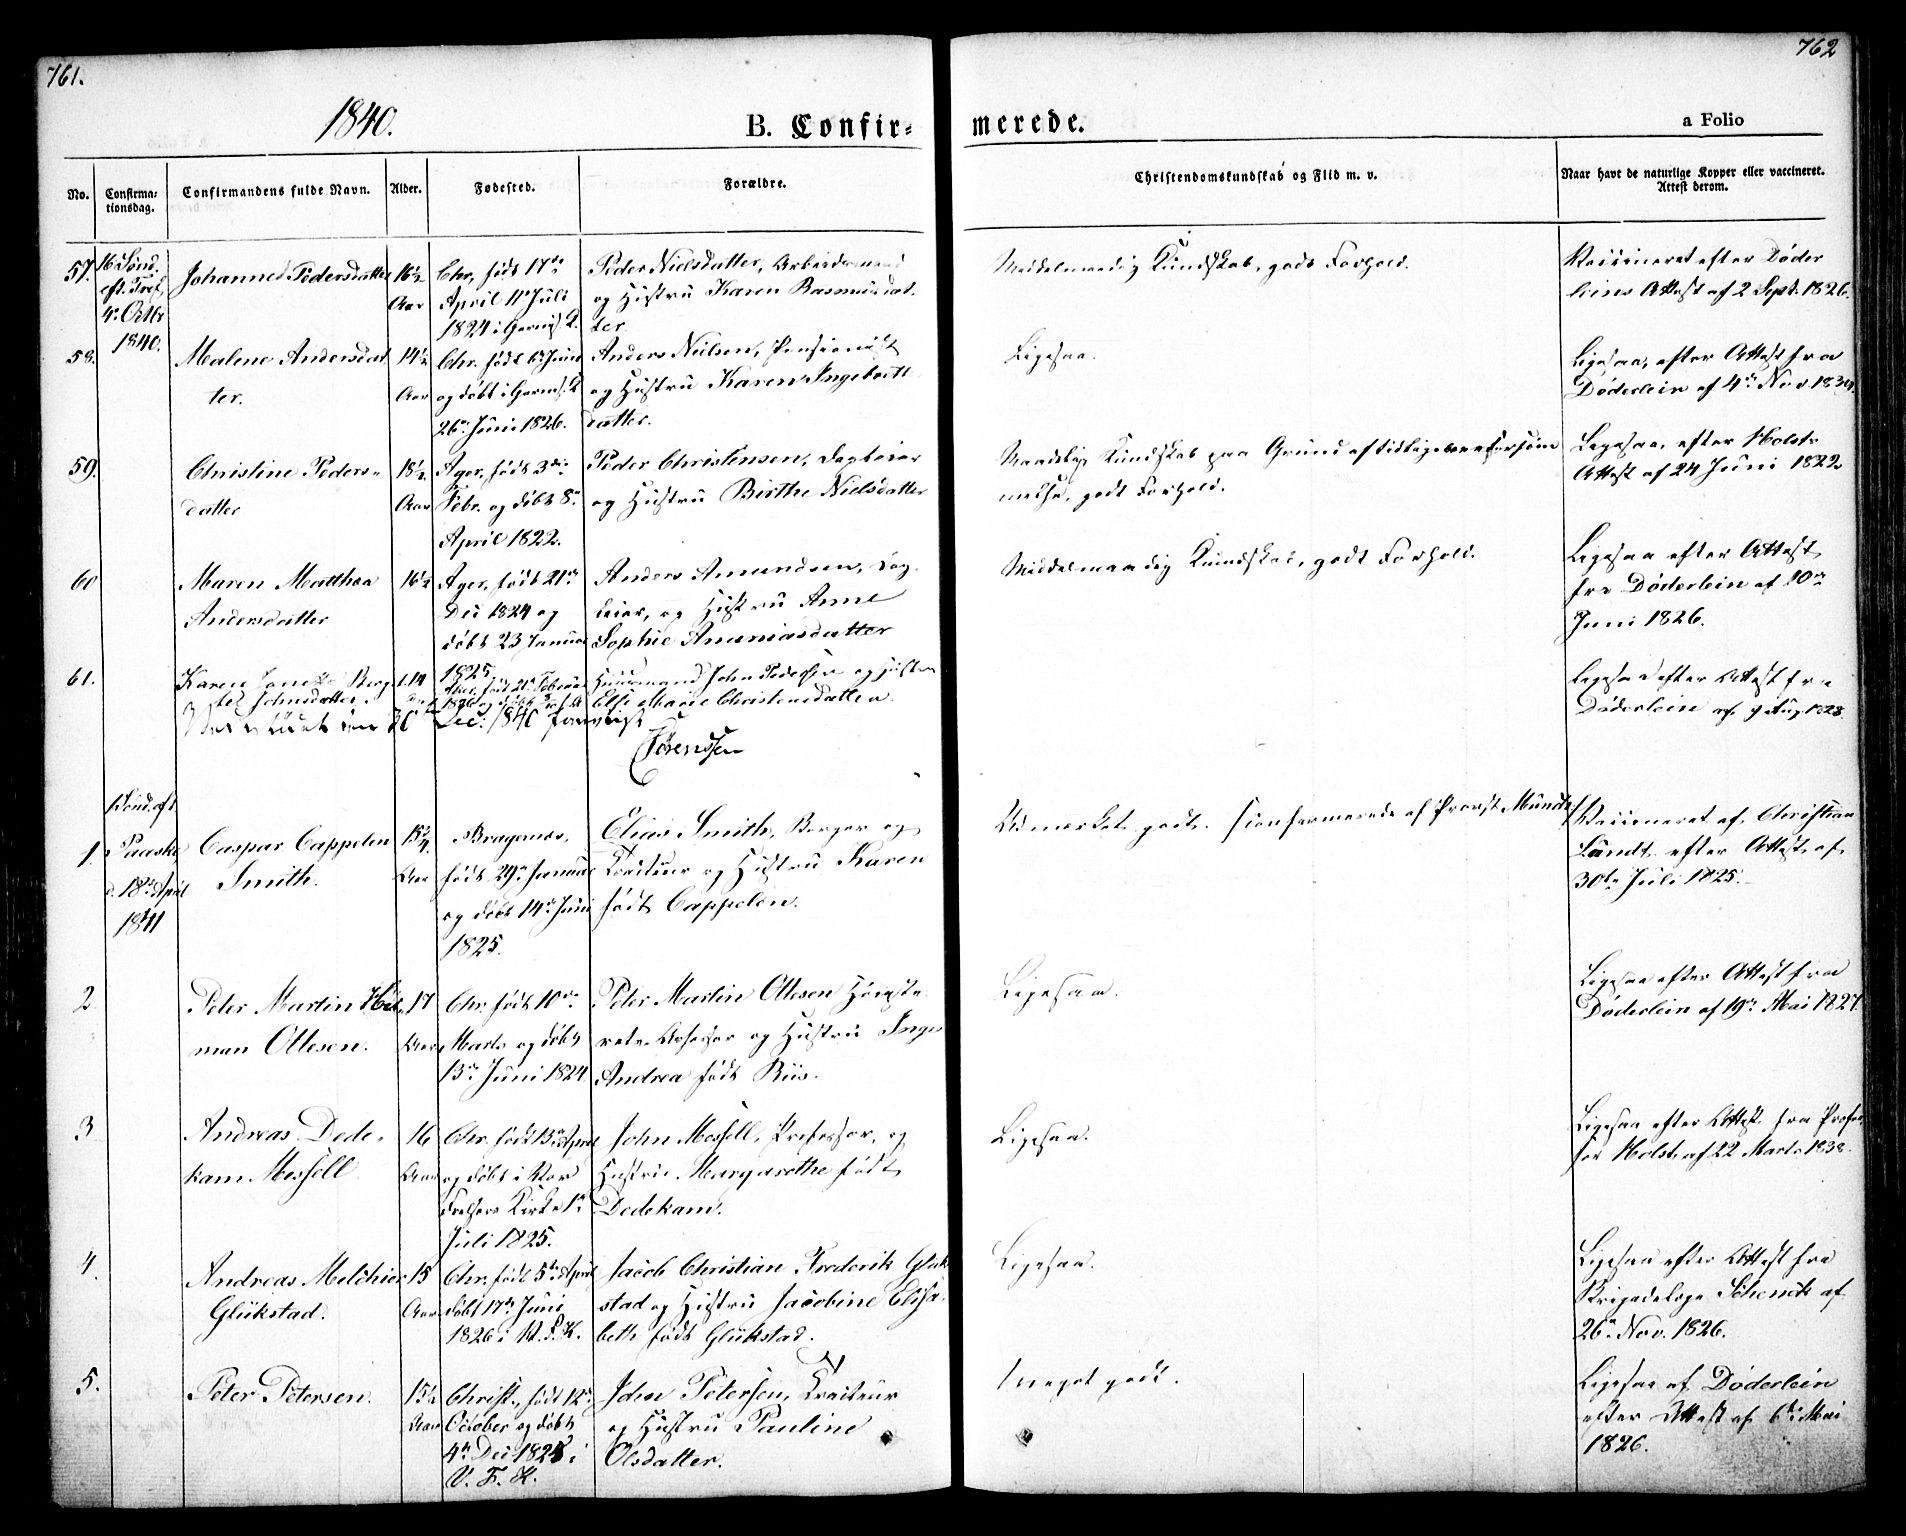 761.
762
1840.
B. Confir=
merede.
a Folio
No.
Confirma-
tionsdag.
Confirmandens fulde Navn.
Alder.
Fødested.
Forældre.
Christendomskundskab og Flid m. v.
Naar havt de naturlige Kopper eller vaccineret.
Attest derom.
57.
16 Sønd.
eft. Tref.
4. Octbr
1840.
Johanne Pedersdatter
16½
Aar
Chr, født 17de
April 11 Juli
1824 i Garnis. K.
Peder Nielsdatter, Arbeidsmand
og Hustru Karen Rasmusdat-
ter.
Middelmaadig Kundskab, godt Forhold.
Vaccineret efter Døder
leins Attest af 2 Sept. 1826.
58.
Malene Andersdat
ter.
14½
Aar
Chr. født 6 Juni
og døbt i Garnis. K
26de Juni 1826.
Anders Nielsen, Pensionist
og Hustru Karen Ingebrett
datter.
Ligesaa.
Ligesaa, efter Attest fra
Døderlein af 4de Nov. 1839.
59.
Christine Peders-
datter
18½
Aar
Ager, født 3die
Febr. og døbt 8de
April 1822.
Peder Christensen, Dagleier
og Hustru Birthe Nielsdatter
Maadelig Kundskab paa Grund af tidligere Forsøm
melse, godt Forhold.
Ligesaa, efter Holsts
Attest af 24 Juni 1822
60
Maren Mathea
Andersdatter
16½
Ager, født 21de
Dec 1824 og
døbt 23 Januar
1825
Anders Amundsen, Dag-
leier, og Hustru Anne
Sophie Ananiasdatter
Middelmaadig Kundskab, godt Forhold.
Ligesaa efter Attest
fra Døderlein af 10de
Juni 1826.
61.
Karen
Johnsdatter.
14
født 21de Februar
1826 og døbt
Huusmand John Pedersen og Hustru
Else Marie Christensdatter.
Ligesaa efter Attest fra
Døderlein af 9 Aug 1828
den 30 Dec: 1840
Sørenssen
1.
Sønd. eft
Paaske
d. 18de April
1841
Caspar Cappelen
Smith.
15¼
Aar
Bragernes,
født 29de Januar
og døbt 14de Juni
1825.
Elias Smith, Borger og
Traiteur og Hustru Karen
født Cappelen.
Udmærket godt. Confirmerede af Provst Munch
Vaccineret af Christian
Lundt efter Attest af
30te Juli 1825.
2
Peter Martin
man Ottesen.
17
Aar
Chr. født 10de
Marts og døbt
13de Juni 1824
Peter Martin Ottesen Høieste
rets-Assessor og Hustru Inge
Andrea født Riis.
Ligesaa.
Ligesaa efter Attest fra
Døderlein af 19de Mai 1827.
3
Andreas Dede-
kam Mossell
16
Aar
Chr. født 13de April
og døbt i Vor
Frelsers Kirke 1ste
Juli 1825.
John Messell, Professor, og
Hustru Margarethe født
Dedekam.
Ligesaa.
Ligesaa efter Attest fra Profes
sor Holst af 22 Marts 1838.
4.
Andreas Melchior
Glükstad.
15
Aar
Chr. født 5te April
døbt 17de Juni
1826 i V. F. K.
Jacob Christian Frederik Glük
stad og Hustru Jacobine Elisa-
beth født Glükstad.
Ligesaa.
Ligesaa efter Attest fra
Brigadelæge Schenck af
26de Nov. 1826.
5.
Peter Petersen.
15½
Aar
Christ., født 12te
October og døbt
4de Dec 1825 i
V. F. K.
John Petersen, Traiteur
og Hustru Pauline
Olsdatter.
meget godt.
Ligesaa af Døderlein
efter Attest af 6te Mai
1826.